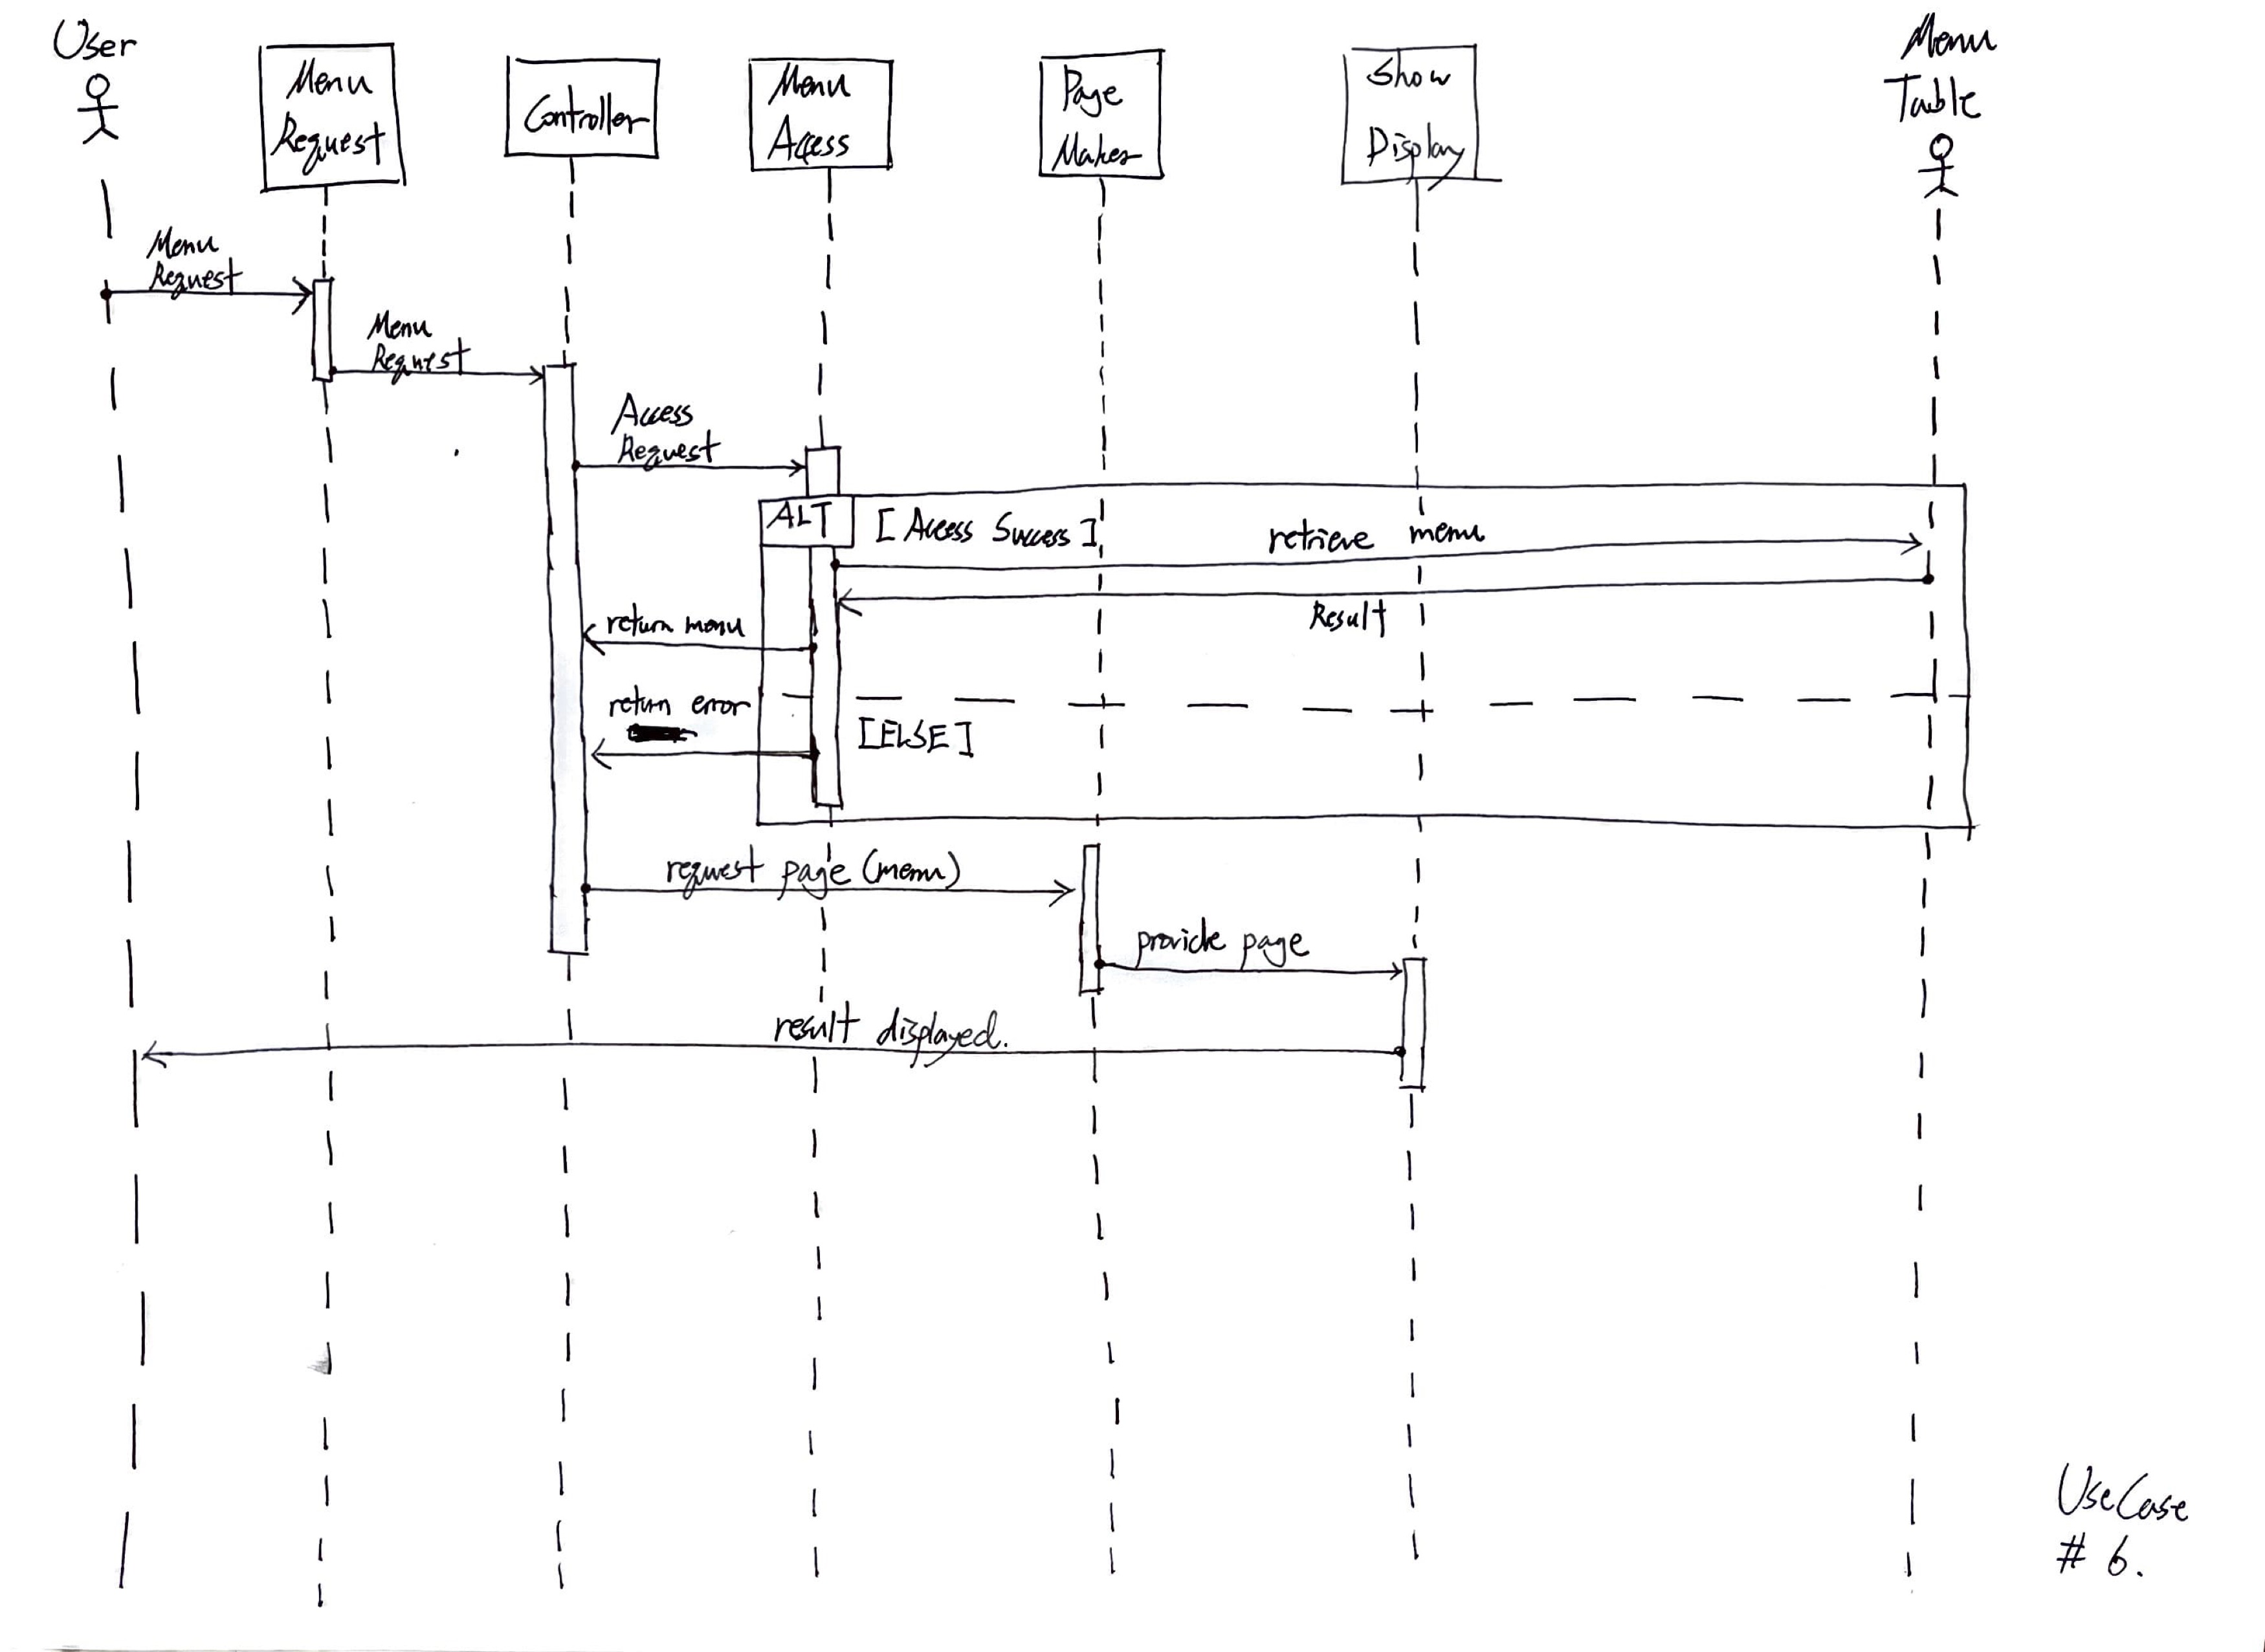 User
Menu
Request
Controller
Menu
Access
Page
Maker
Show
Display
Menu
Table
Menu
Request
Menu
Request
Access
Request
ALT
[Access Success]
retrieve menu
Result
return menu
return error
[ELSE]
request page (menu)
provide page
result displayed.
UseCase
# 6.